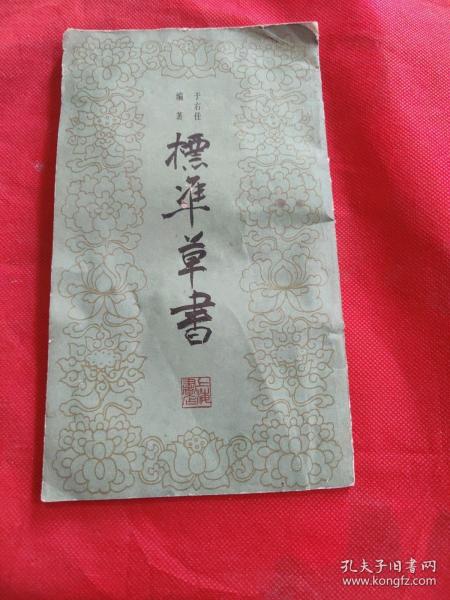 于右任
编著
標準草書
上海書店
孔夫子旧书网
www.kongfz.com